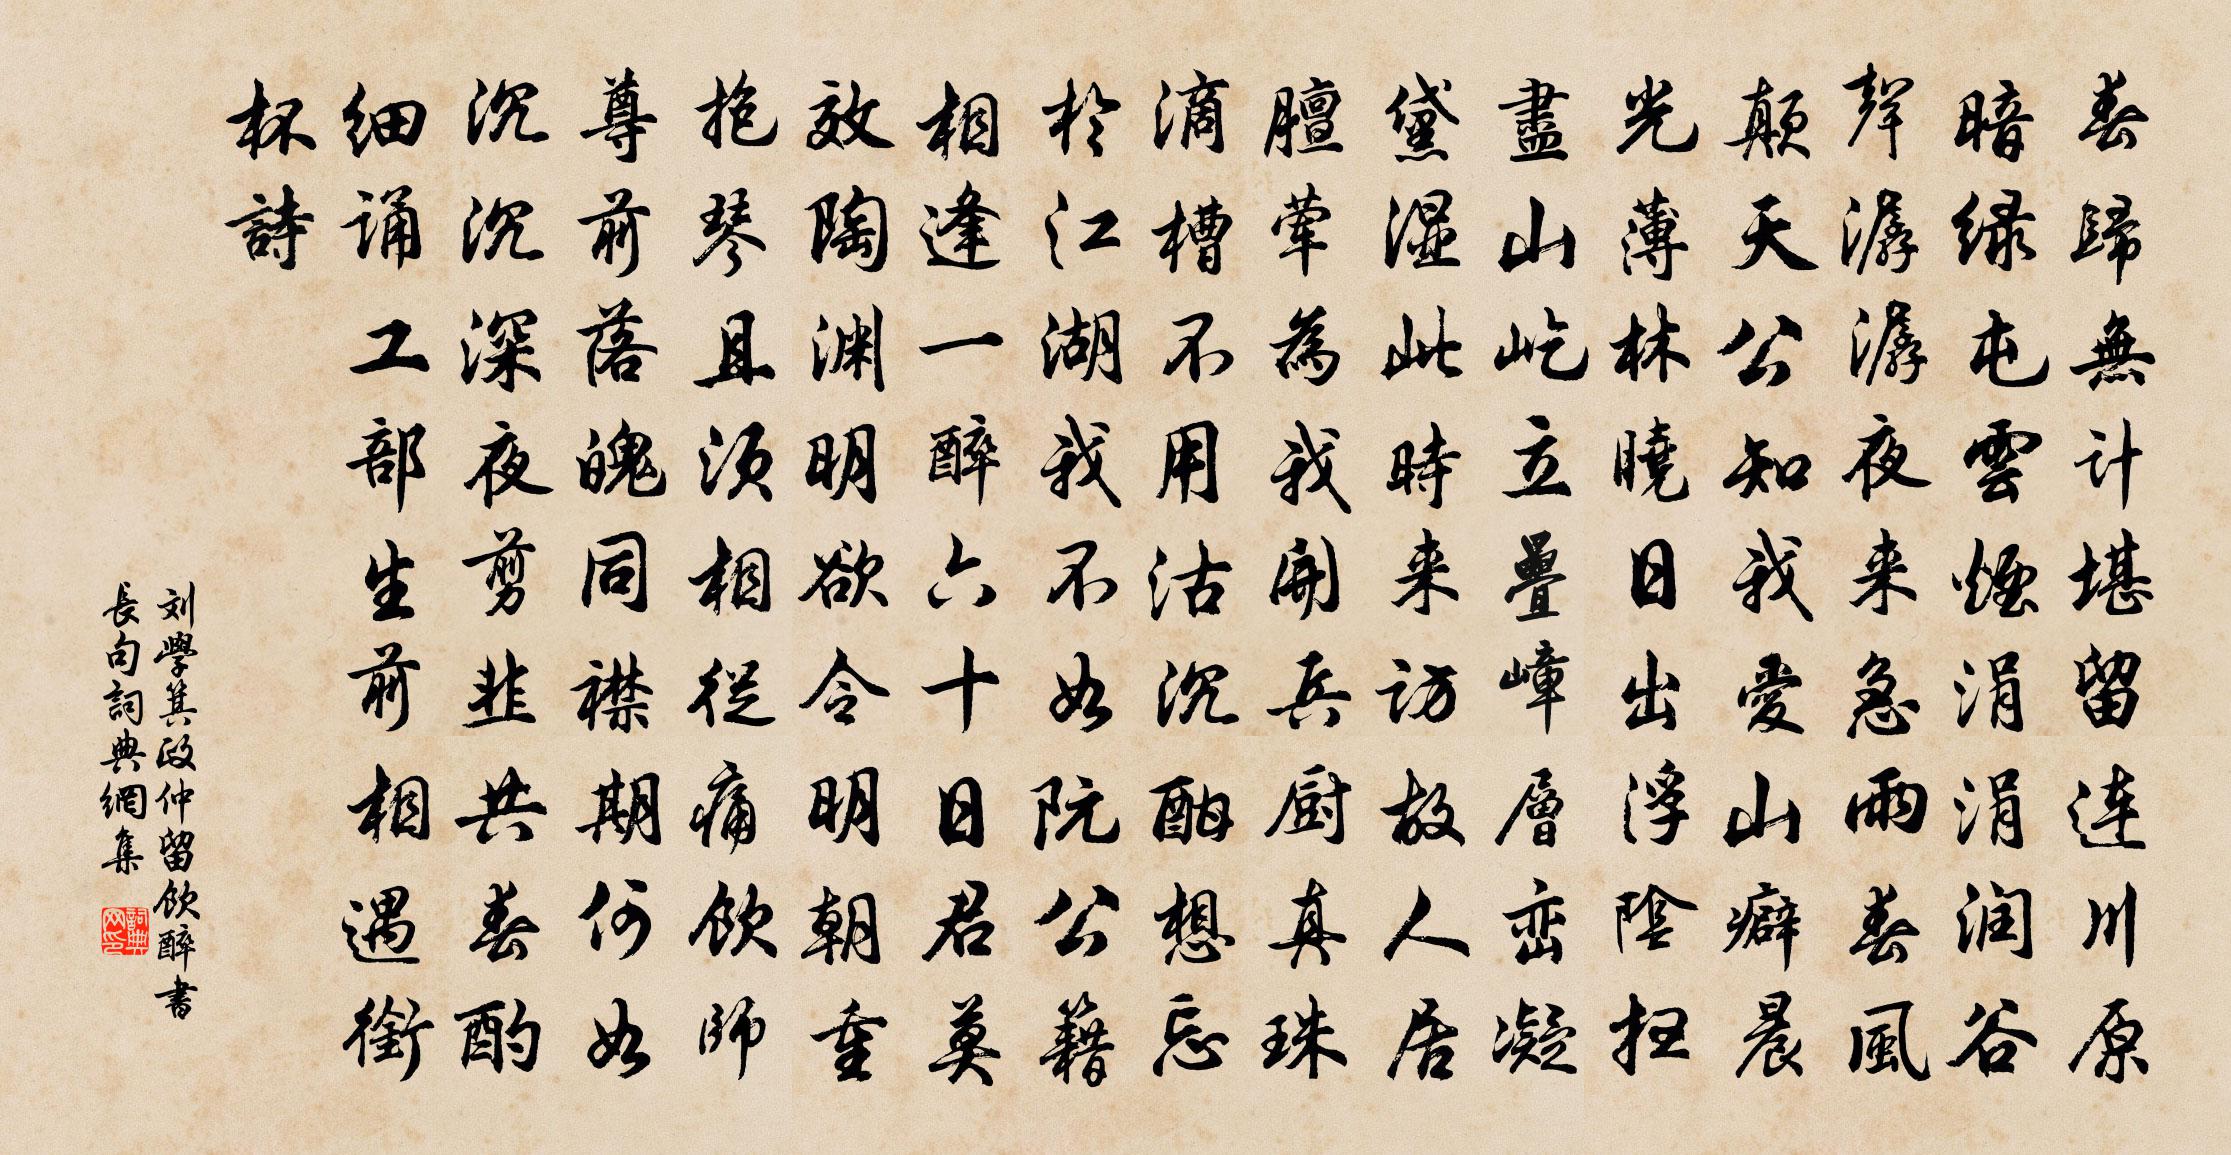 春歸無計堪留連川原
暗绿屯雲煙涓涓润谷
聲潺潺夜来急雨春風
颠天公知我愛山癖晨
光薄林曉日出浮陰扫
盡山屹立疊嶂層巒凝
黛湿此時来访故人居
膻荤為我開兵厨真珠
滴槽不用沽沉酣想忘
於江湖我不如阮公籍
相逢一醉六十日君莫
效陶渊明欲令明朝重
抱琴且须相從痛飲師
尊前落魄同襟期何如
沉沉深夜剪韭共春酌
细诵工部生前相遇銜
杯詩
刘學箕政仲留飲醉書
長句詞典網集
詞典网印